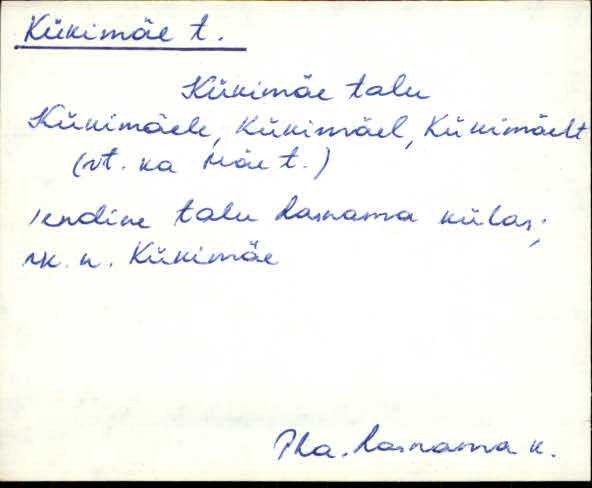 Kükimäe t.
Kükimäe talu
Kükimäele, Kükimäel, Kükimäelt
(vt. ka Mäe t.)
endine talu Rannama külas;
rk. n. Kükimäe
Pha. Rannama k.